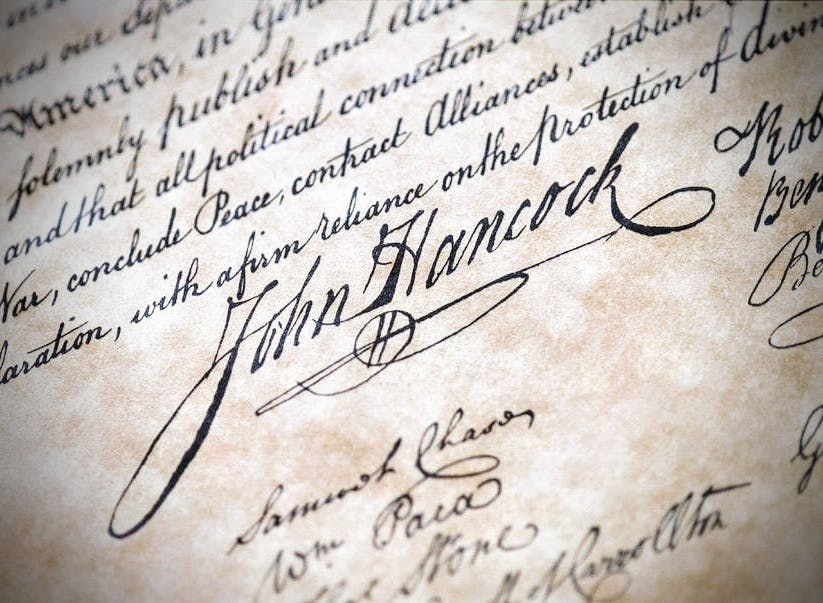 our
America, in
solemnly publish and
and that all political connection between
War, conclude Peace, contract Alliances, establish
laration, with a firm reliance on the protection of divin
John Hancock
Rob
Ben
Be
Samuel Chase
Wm Paca
Stone
Carrollton